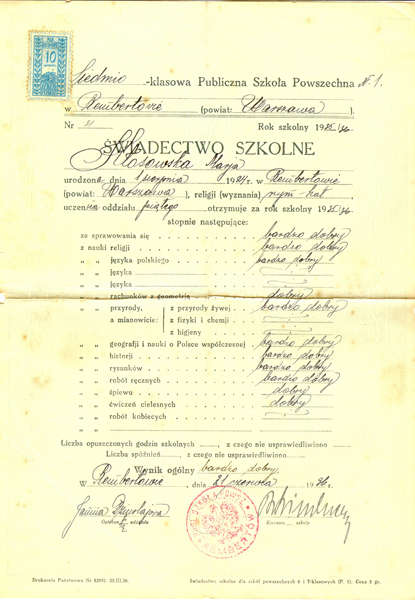 10
Siedmio -klasowa Publiczna Szkoła Powszechna Nr 1.
w Rembertowie (powiat: Warszawa ).
Nr 31 Rok szkolny 1935/36
ŚWIADECTWO SZKOLNE
Kłosowska Marja
urodzona dnia 1 sierpnia 1924 r. w Rembertowie
(powiat: Warszawa ), religji (wyznania) rzym. kat.
uczenna oddziału piątego otrzymuje za rok szkolny 1935/36
stopnie następujące:
ze sprawowania się bardzo dobry
z nauki religji bardzo dobry
„ „ języka polskiego bardzo dobry
„ „ języka
„ „ języka
„ „ rachunków z geometrją dobry
„ „ przyrody, z przyrody żywej bardzo dobry
a mianowicie: z fizyki i chemji
z higjeny
„ „ geografji i nauki o Polsce współczesnej bardzo dobry
„ „ historji bardzo dobry
„ „ rysunków bardzo dobry
„ „ robót ręcznych bardzo dobry
„ „ śpiewu dobry
„ „ ćwiczeń cielesnych dobry
„ „ robót kobiecych
Liczba opuszczonych godzin szkolnych , z czego nie usprawiedliwiono
Liczba spóźnień , z czego nie usprawiedliwiono
Wynik ogólny bardzo dobry
w Rembertowie , dnia 21 czerwca 1936
Janina
Opiekun oddziału Kierown. szkoły
Drukarnia Państwowa Nr 82092. 23.III.36. Świadectwo szkolne dla szkół powszechnych 6 i 7-klasowych (P. 3). Cena 8 gr.